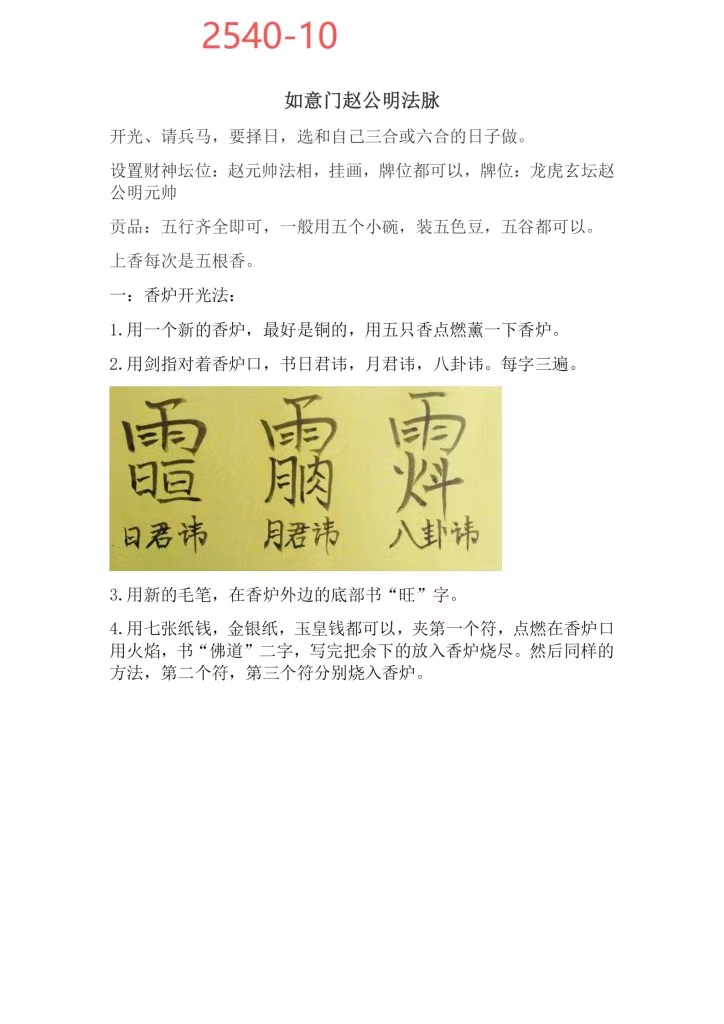 2540-10
如意门赵公明法脉
开光、请兵马，要择日，选和自己三合或六合的日子做。
设置财神坛位：赵元帅法相，挂画，牌位都可以，牌位：龙虎玄坛赵
公明元帅
贡品：五行齐全即可，一般用五个小碗，装五色豆，五谷都可以。
上香每次是五根香。
一：香炉开光法：
1.用一个新的香炉，最好是铜的，用五只香点燃薰一下香炉。
2.用剑指对着香炉口，书日君讳，月君讳，八卦讳。每字三遍。
日君讳 月君讳 八卦讳
3.用新的毛笔，在香炉外边的底部书“旺”字。
4.用七张纸钱，金银纸，玉皇钱都可以，夹第一个符，点燃在香炉口
用火焰，书“佛道”二字，写完把余下的放入香炉烧尽。然后同样的
方法，第二个符，第三个符分别烧入香炉。